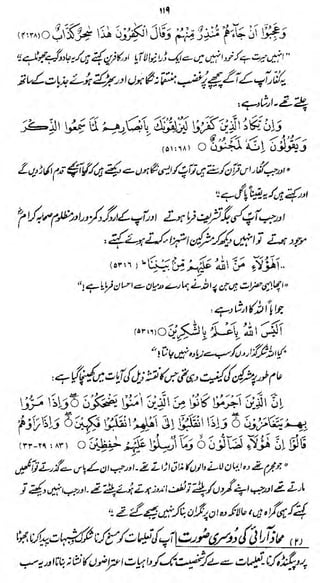 ۱۱۹
وَعَجِبُوا أَنْ جَاءَهُمْ مُنْذِرٌ مِنْهُمْ وَقَالَ الْكٰفِرُونَ هٰذَا سٰحِرٌ كَذَّابٌ ○ (۴:۳۸)
"انہیں حیرت ہے کہ خود انہیں میں سے ایک ڈرانے والا آیا اور کافرین کہتے ہیں کہ جادوگر ہے جھوٹا ہے"۔
یہ کفار آپ کے آگے پیچھے پُر غضب، منتقمانہ نگاہوں اور بھڑکتے ہوئے جذبات کے ساتھ
چلتے تھے۔ ارشاد ہے:
وَإِنْ يَكَادُ الَّذِينَ كَفَرُوا لَيُزْلِقُونَكَ بِأَبْصَارِهِمْ لَمَّا سَمِعُوا الذِّكْرَ
وَيَقُولُونَ إِنَّهُ لَمَجْنُونٌ ○ (۵۱:۶۸)
"اور جب کفار اس قرآن کو سنتے ہیں تو آپ کو ایسی نگاہوں سے دیکھتے ہیں کہ گویا آپ کے قدم اکھاڑ دیں گے
اور کہتے ہیں کہ یہ یقیناً پاگل ہے"۔
اور جب آپ کسی جگہ تشریف فرما ہوتے اور آپ کے ارد گرد کمزور اور مظلوم صحابہ کرام
موجود ہوتے تو انہیں دیکھ کر مشرکین استہزاء کرتے ہوئے کہتے:
..أَهٰؤُلَاءِ مَنَّ اللهُ عَلَيْهِمْ مِنْ بَيْنِنَا ؕ (۵۳:۶)
"اچھا! یہی حضرات ہیں جن پر اللہ نے ہمارے درمیان سے احسان فرمایا ہے!"
جواباً اللہ کا ارشاد ہے:
أَلَيْسَ اللهُ بِأَعْلَمَ بِالشّٰكِرِينَ ○ (۵۳:۶)
"کیا اللہ شکر گزاروں کو سب سے زیادہ نہیں جانتا!"
عام طور پر مشرکین کی کیفیت وہی تھی جس کا نقشہ ذیل کی آیات میں کھینچا گیا ہے:
إِنَّ الَّذِينَ أَجْرَمُوا كَانُوا مِنَ الَّذِينَ آمَنُوا يَضْحَكُونَ ○ وَإِذَا مَرُّوا
بِهِمْ يَتَغَامَزُونَ ○ وَإِذَا انْقَلَبُوا إِلَىٰ أَهْلِهِمُ انْقَلَبُوا فَكِهِينَ ○ وَإِذَا رَأَوْهُمْ
قَالُوا إِنَّ هٰؤُلَاءِ لَضَالُّونَ ○ وَمَا أُرْسِلُوا عَلَيْهِمْ حٰفِظِينَ ○ (۸۳: ۲۹-۳۳)
"جو مجرم تھے وہ ایمان لانے والوں کا مذاق اڑاتے تھے۔ اور جب ان کے پاس سے گزرتے تو آنکھیں
مارتے تھے اور جب اپنے گھروں کو پلٹتے تو لطف اندوز ہوتے ہوئے پلٹتے تھے۔ اور جب انہیں دیکھتے تو
کہتے کہ یہی گمراہ ہیں، حالانکہ وہ ان پر نگراں بنا کر نہیں بھیجے گئے تھے"۔
(۲) محاذ آرائی کی دوسری صورت: آپ کی تعلیمات کو مسخ کرنا، شکوک و شبہات پیدا کرنا، جھوٹا
پروپیگنڈہ کرنا، تعلیمات سے لے کر شخصیت تک کو واہیات اعتراضوں کا نشانہ بنانا اور یہ سب